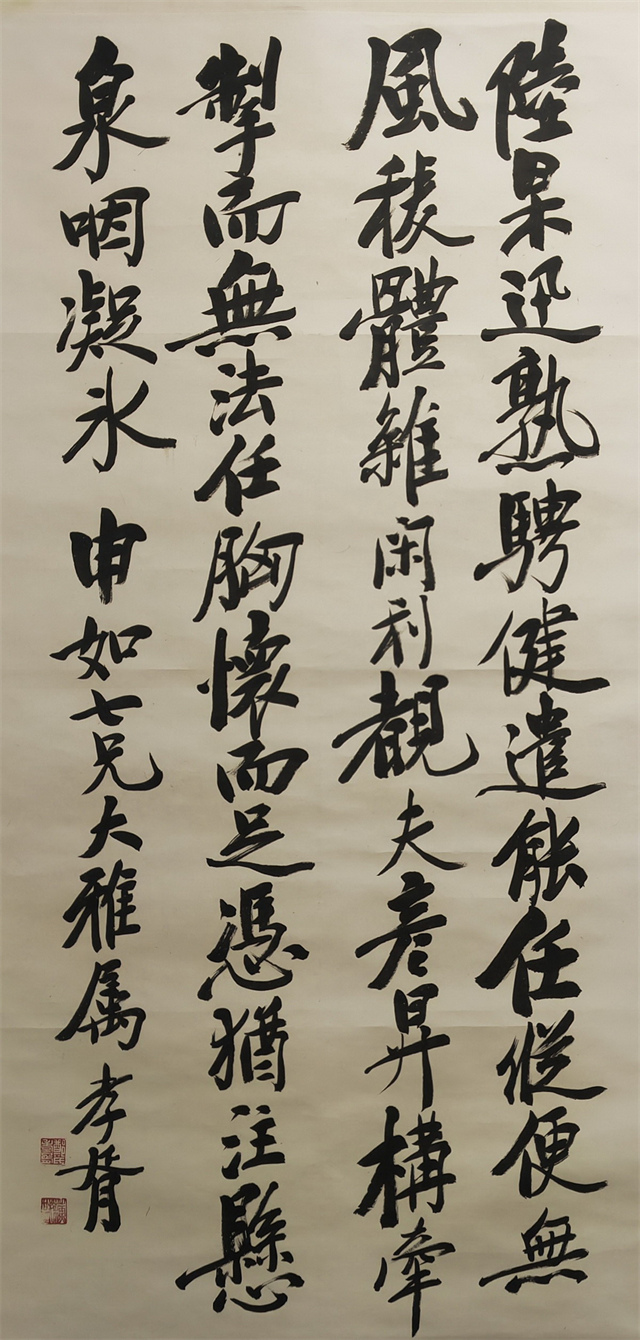 陸杲迅熟騁健遣能任縱便無
風稜體雖閑利覩夫彥昇構牽
掣而無法任胸懷而足憑猶注懸
泉咽凝氷 申如七兄大雅属 孝胥